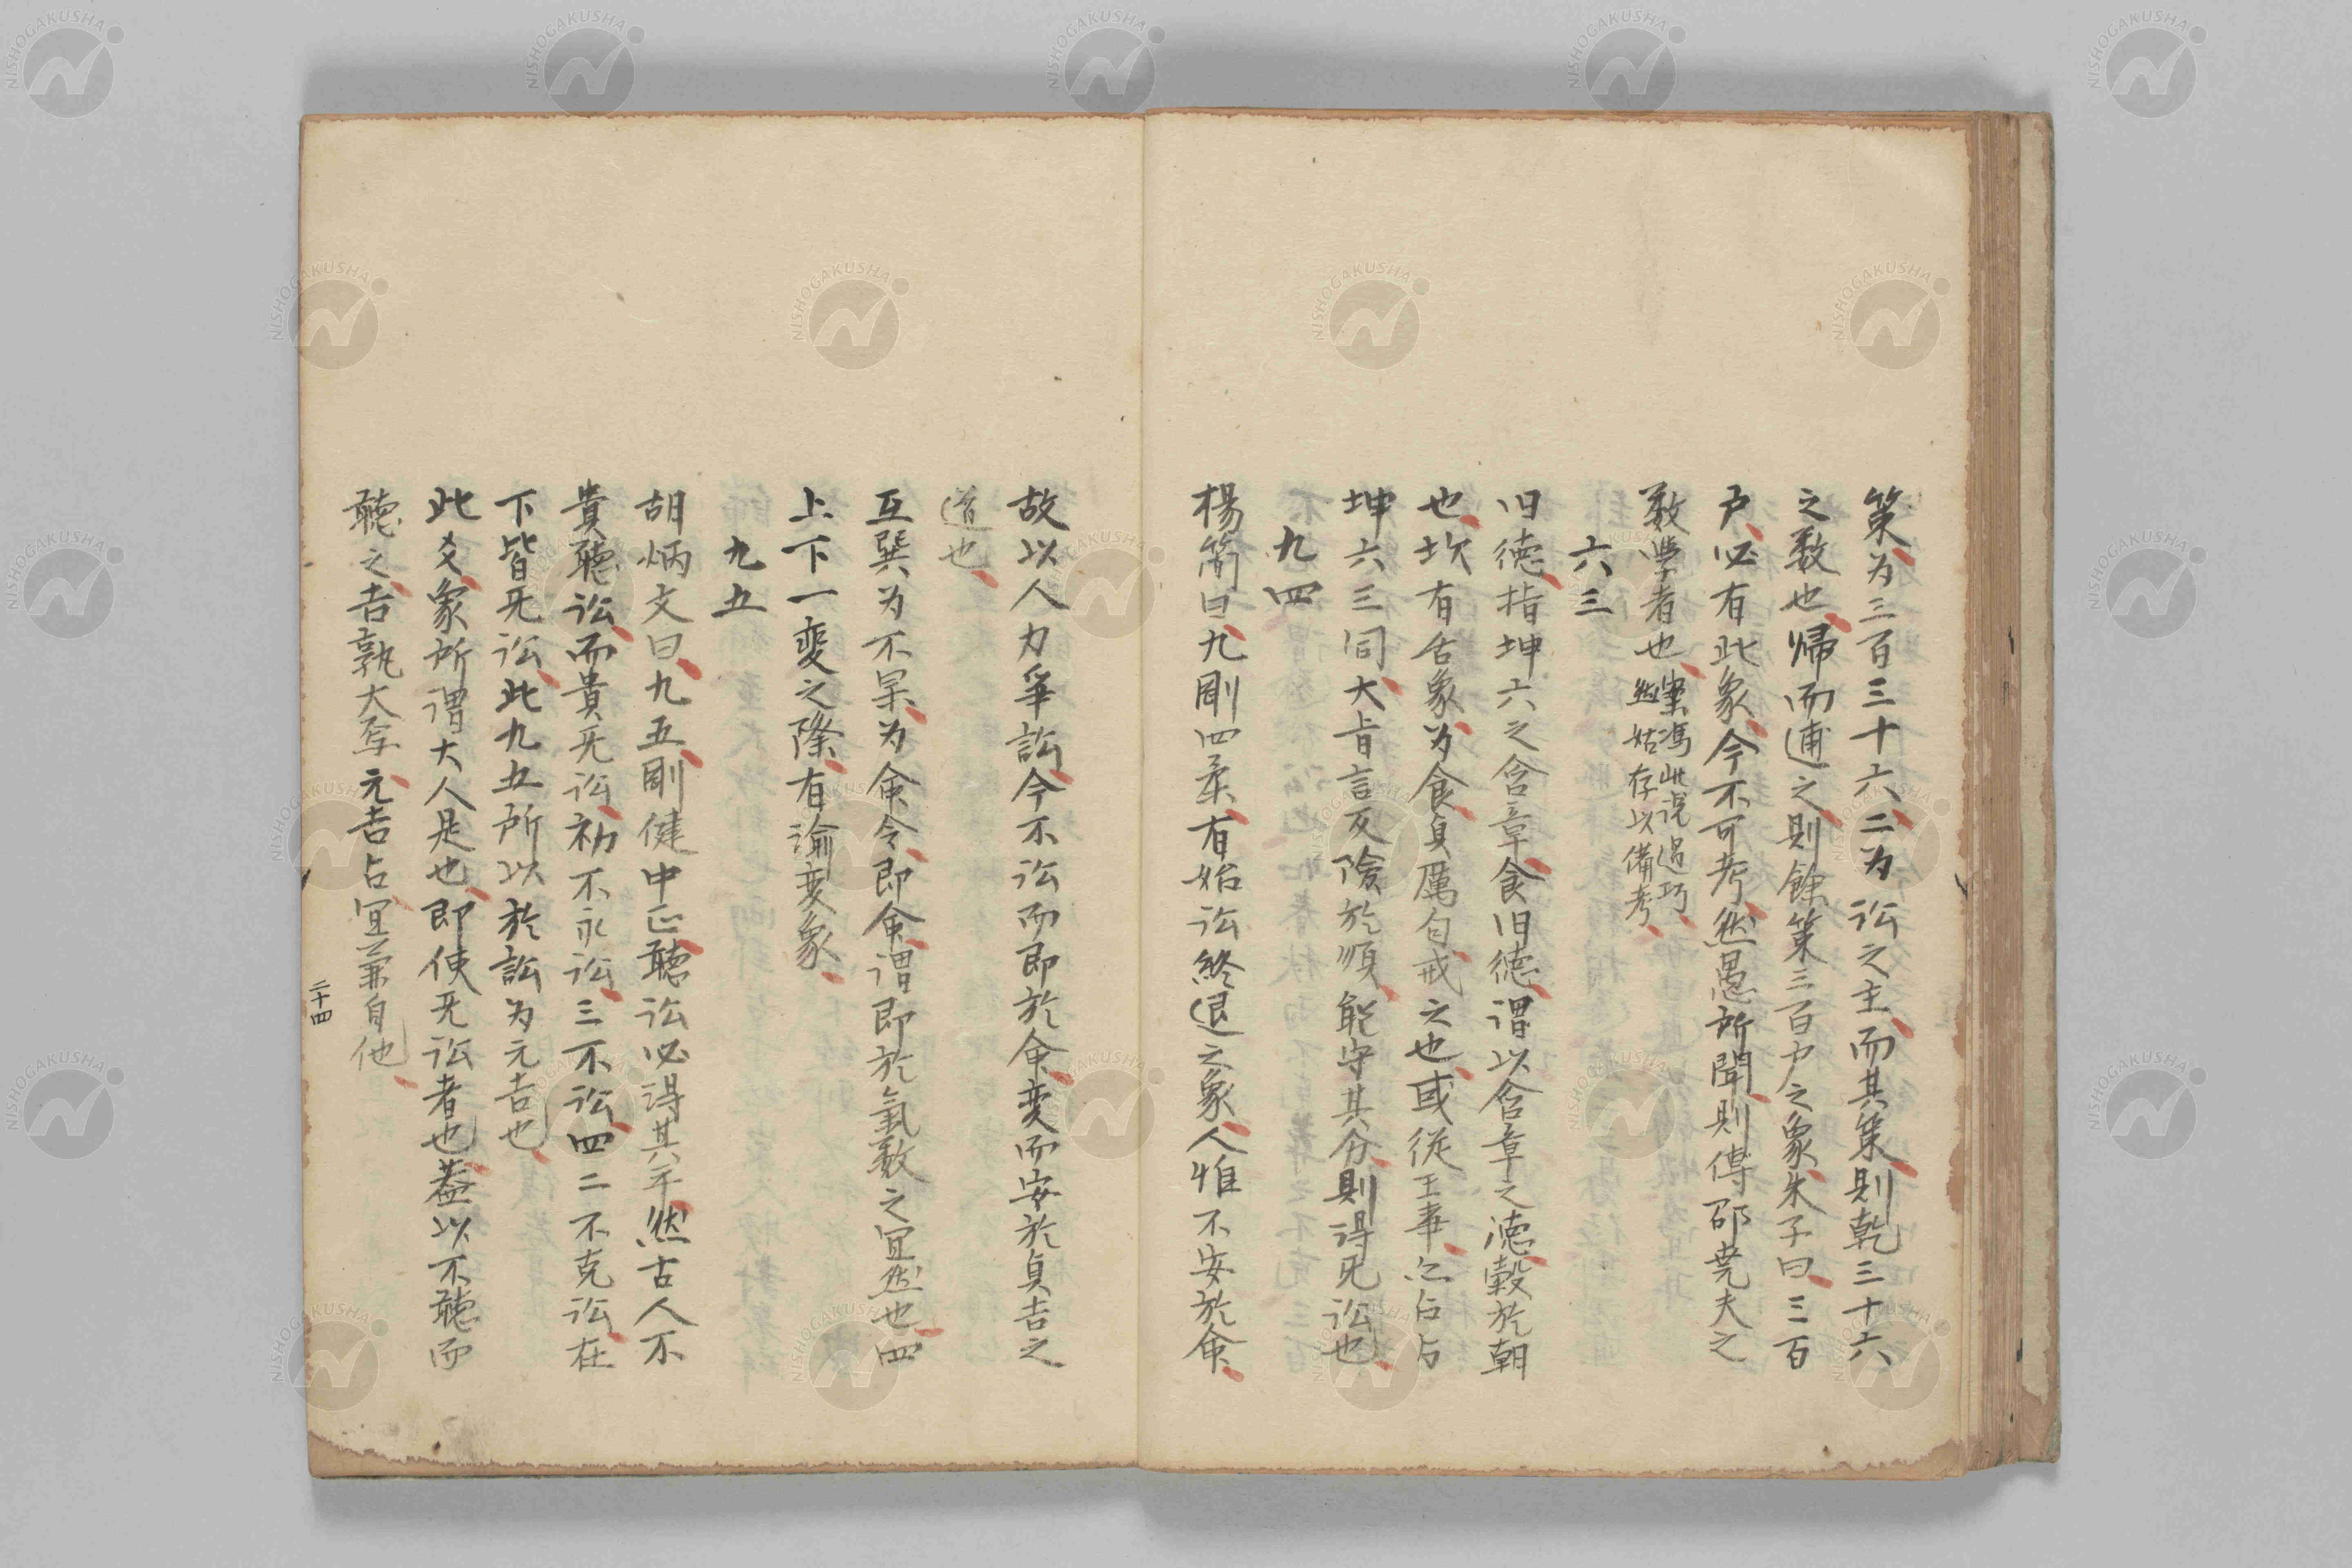 策为三百三十六、二为讼之主、而其策則乾三十六
之数也、帰而逋之、則餘策三百戸之象、朱子曰、三百
戸、必有此象、今不可考、然愚所聞、則傳邵尭夫之
数学者也、案馮此説過巧、
然姑存以備考、
六三
旧徳、指坤六之含章、食旧徳、謂以含章之徳、穀於朝
也、坎有舌象、为食、貞厲自戒之也、或従王事、占与
坤六三同、大旨言反險於順、能守其分、則得无讼也、
九四
楊簡曰、九剛四柔、有始讼終退之象、人惟不安於命、
故以人力争訟、今不讼而即於命、変而安於貞、吉之
道也、
互巽为不果、为命令、即命、謂即於氣数之宜然也、四
上下一変之際、有渝変象、
九五
胡炳文曰、九五、剛健中正、聽讼必得其平、然古人不
貴聽讼、而貴无讼、初不永讼、三不讼、四二不克讼、在
下皆无讼、此九五所以於訟为元吉也、
此爻象所謂大人是也、即使无讼者也、蓋以不聽而
聽之、吉孰大焉、元吉占、宜兼自他、
二十四
NISHOGAKUSHA